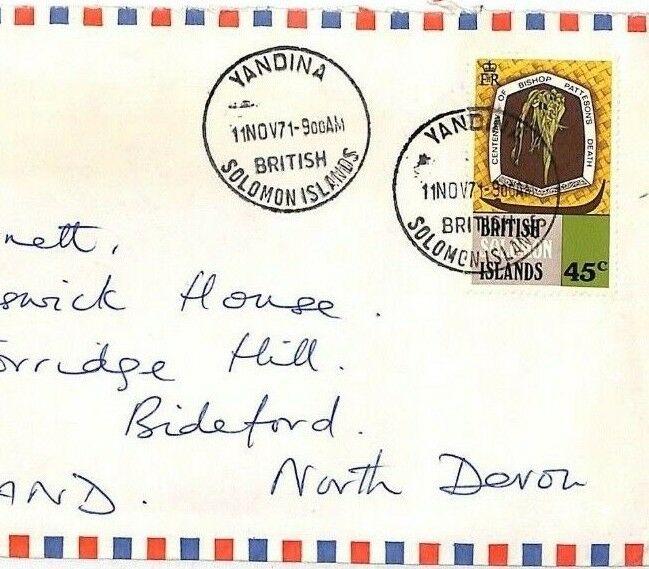 YANDINA
11NOV71-900AM
BRITISH
SOLOMON ISLANDS
YANDINA
11NOV71-900AM
BRITISH
SOLOMON ISLANDS
E R
CENTENARY OF BISHOP PATTESON'S DEATH
BRITISH
SOLOMON
ISLANDS 45c
nett,
swick House.
orridge Hill.
Bideford.
AND. North Devon